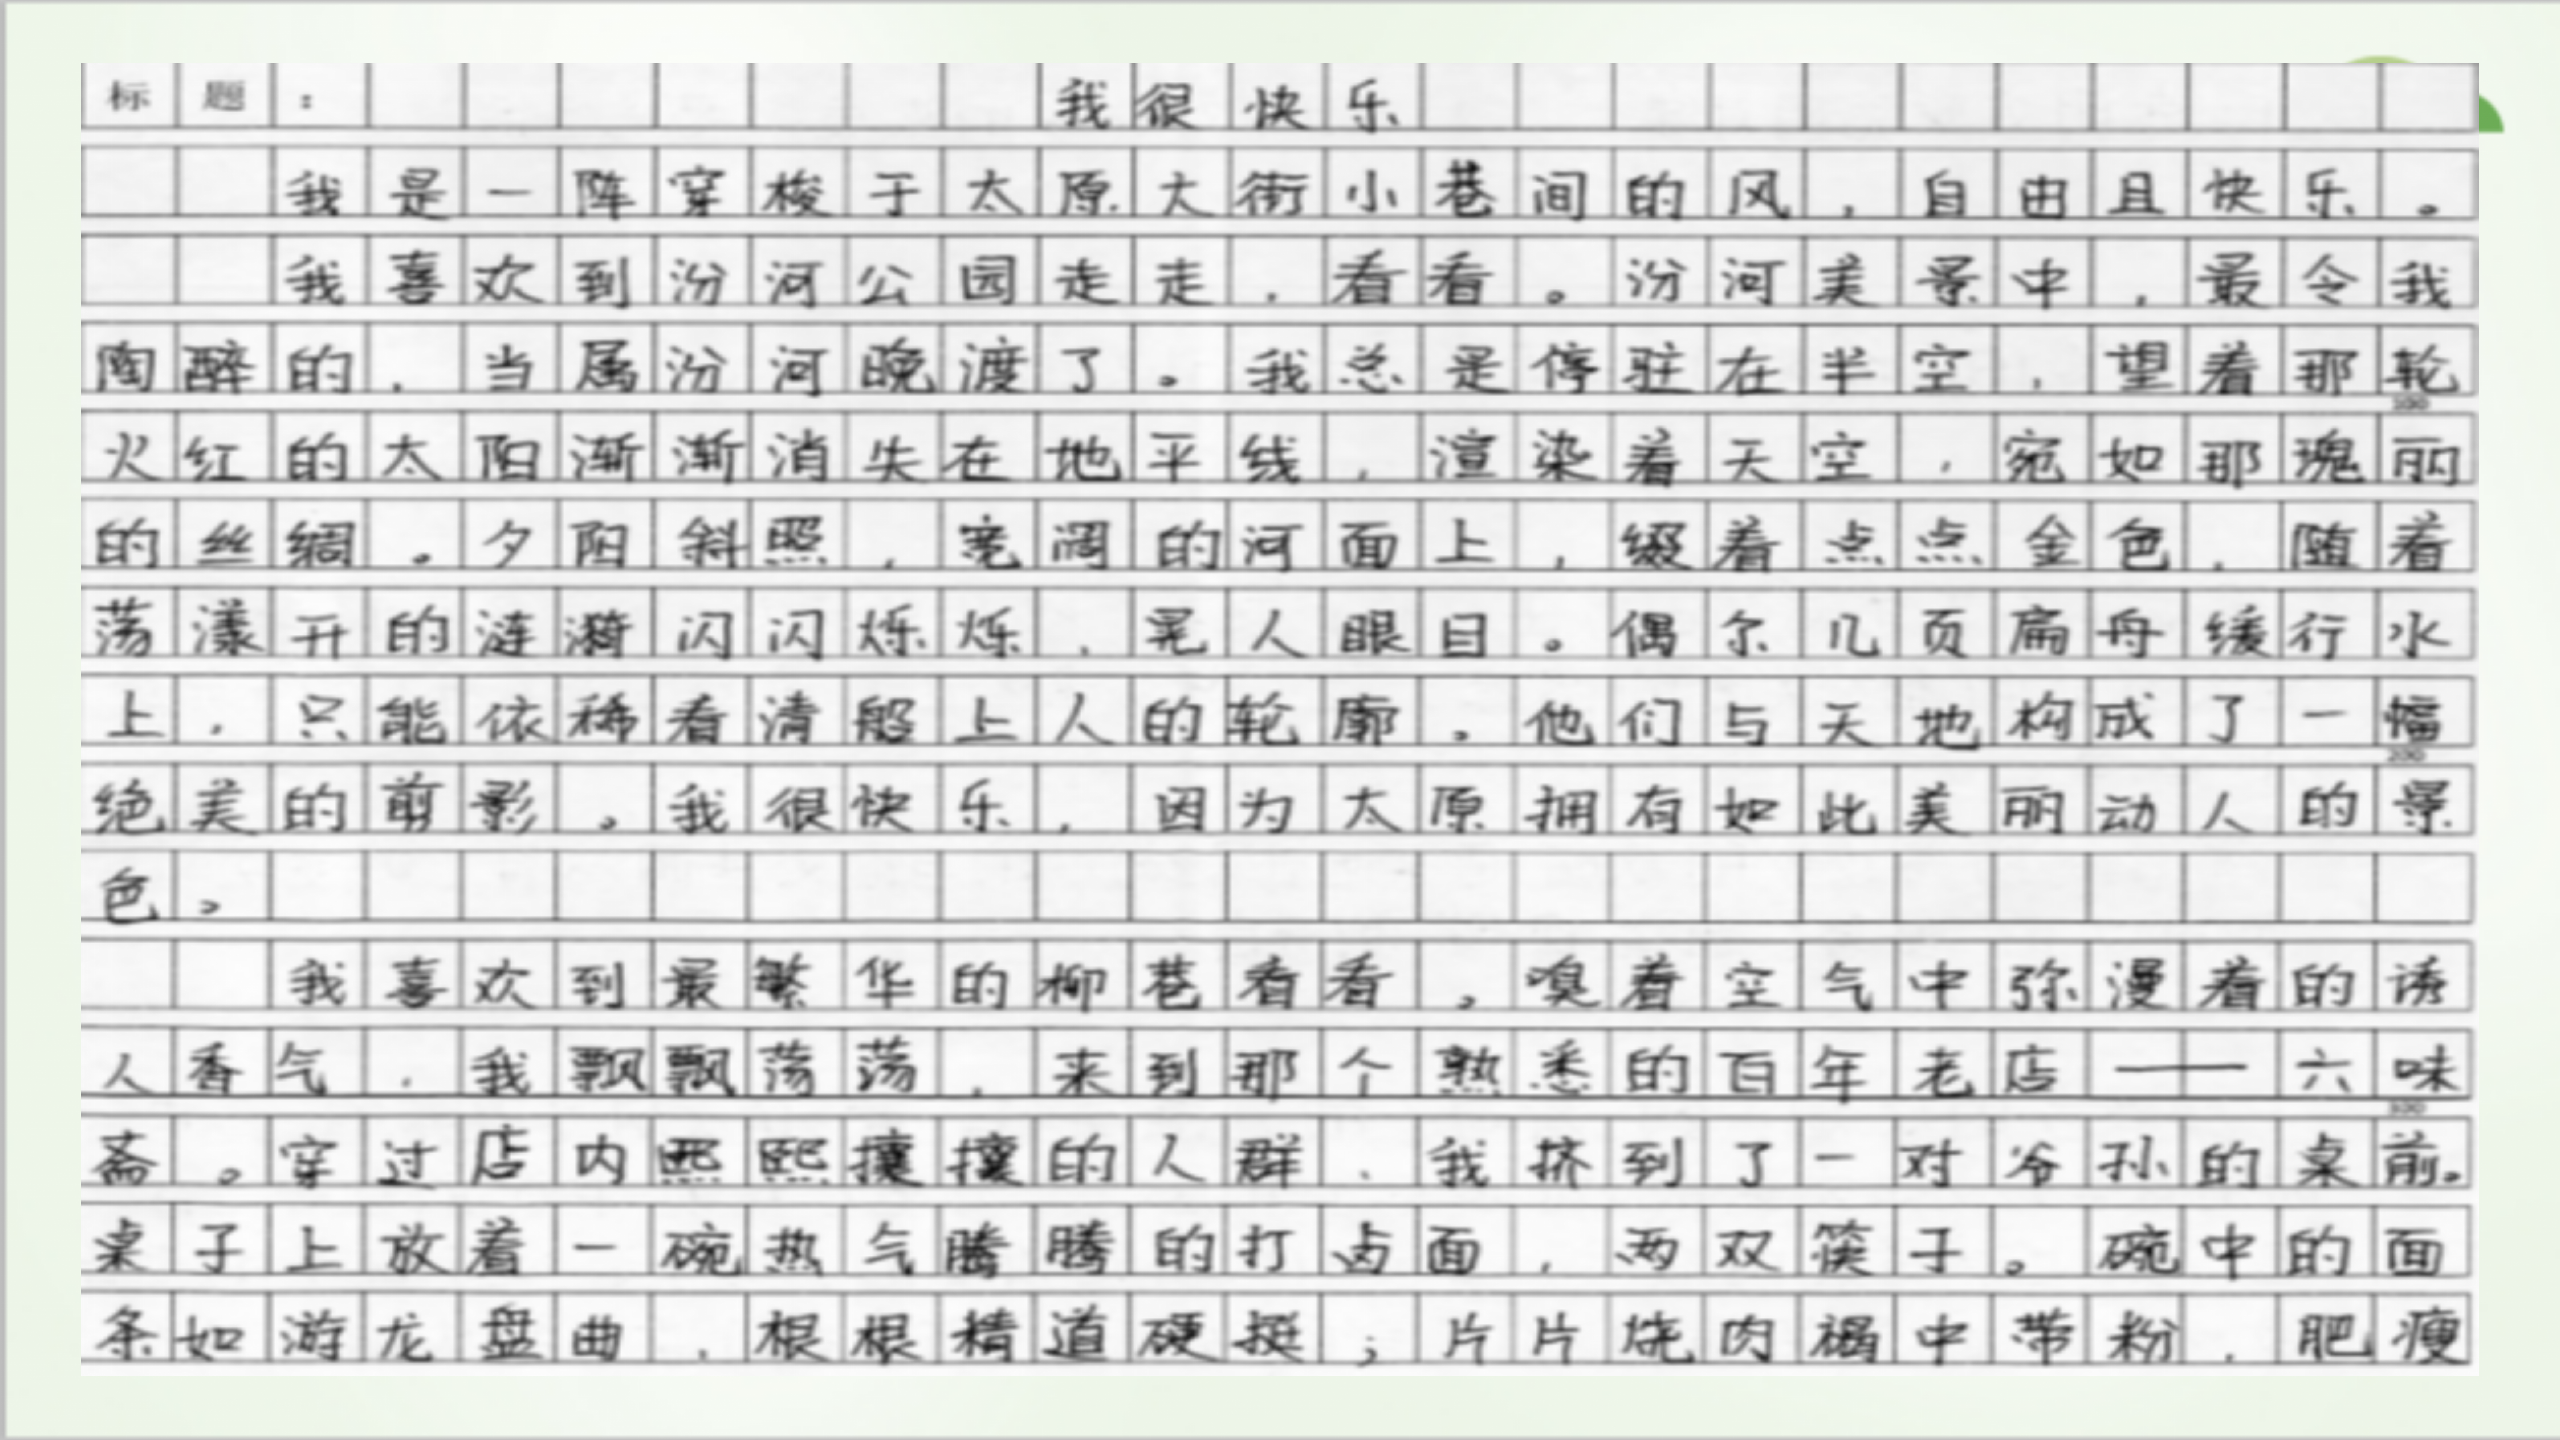 标题： 我很快乐
我是一阵穿梭于太原大街小巷间的风，自由且快乐。
我喜欢到汾河公园走走，看看。汾河美景中，最令我
陶醉的，当属汾河晚渡了。我总是停驻在半空，望着那轮
100
火红的太阳渐渐消失在地平线，渲染着天空，宛如那瑰丽
的丝绸。夕阳斜照，宽阔的河面上，缀着点点金色，随着
荡漾开的涟漪闪闪烁烁，晃人眼目。偶尔几页扁舟缓行水
上，只能依稀看清船上人的轮廓。他们与天地构成了一幅
200
绝美的剪影。我很快乐，因为太原拥有如此美丽动人的景
色。
我喜欢到最繁华的柳巷看看。嗅着空气中弥漫着的诱
人香气，我飘飘荡荡，来到那个熟悉的百年老店——六味
300
斋。穿过店内熙熙攘攘的人群，我挤到了一对爷孙的桌前。
桌子上放着一碗热气腾腾的打卤面，两双筷子。碗中的面
条如游龙盘曲，根根精道硬挺；片片烧肉褐中带粉，肥瘦